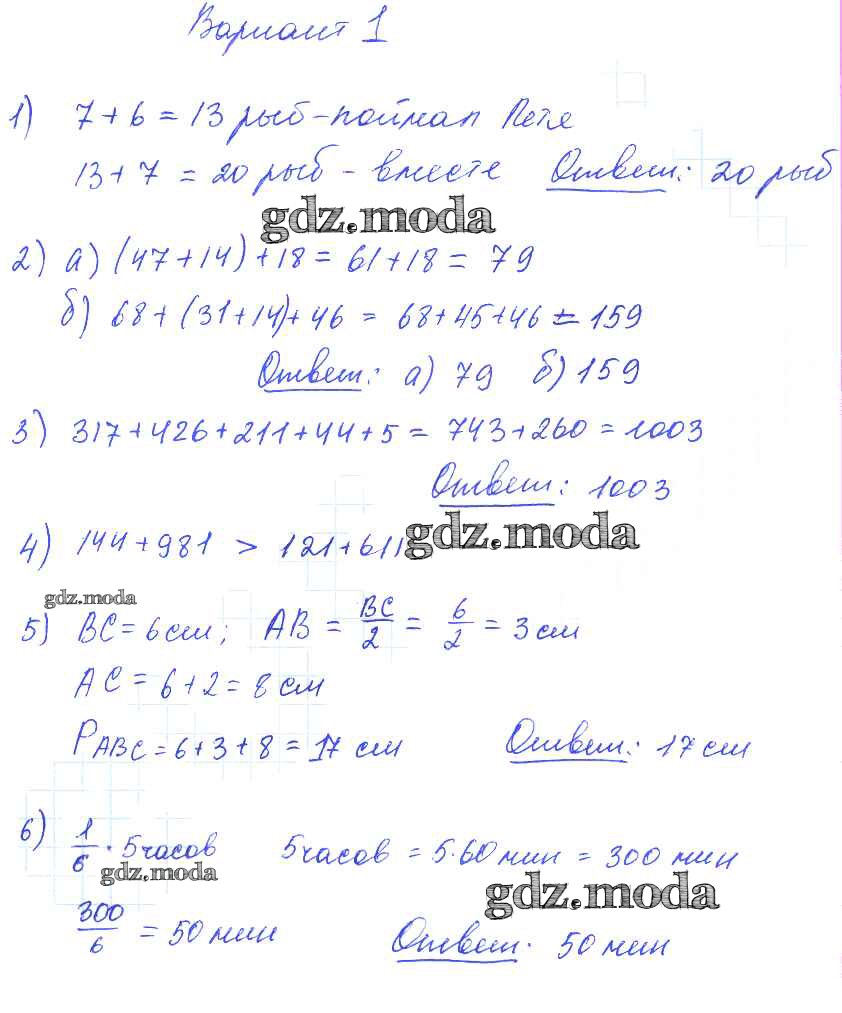 Вариант 1
1) 7 + 6 = 13 рыб - поймал Петя
13 + 7 = 20 рыб - вместе Ответ: 20 рыб
gdz.moda
2) а) (47 + 14) + 18 = 61 + 18 = 79
б) 68 + (31 + 14) + 46 = 68 + 45 + 46 = 159
Ответ: а) 79 б) 159
3) 317 + 426 + 211 + 44 + 5 = 743 + 260 = 1003
Ответ: 1003
4) 144 + 981 > 121 + 611 gdz.moda
gdz.moda
5) BC = 6 см; AB = BC/2 = 6/2 = 3 см
AC = 6 + 2 = 8 см
P ABC = 6 + 3 + 8 = 17 см Ответ: 17 см
6) 1/6 · 5 часов 5 часов = 5 · 60 мин = 300 мин
gdz.moda gdz.moda
300/6 = 50 мин Ответ: 50 мин